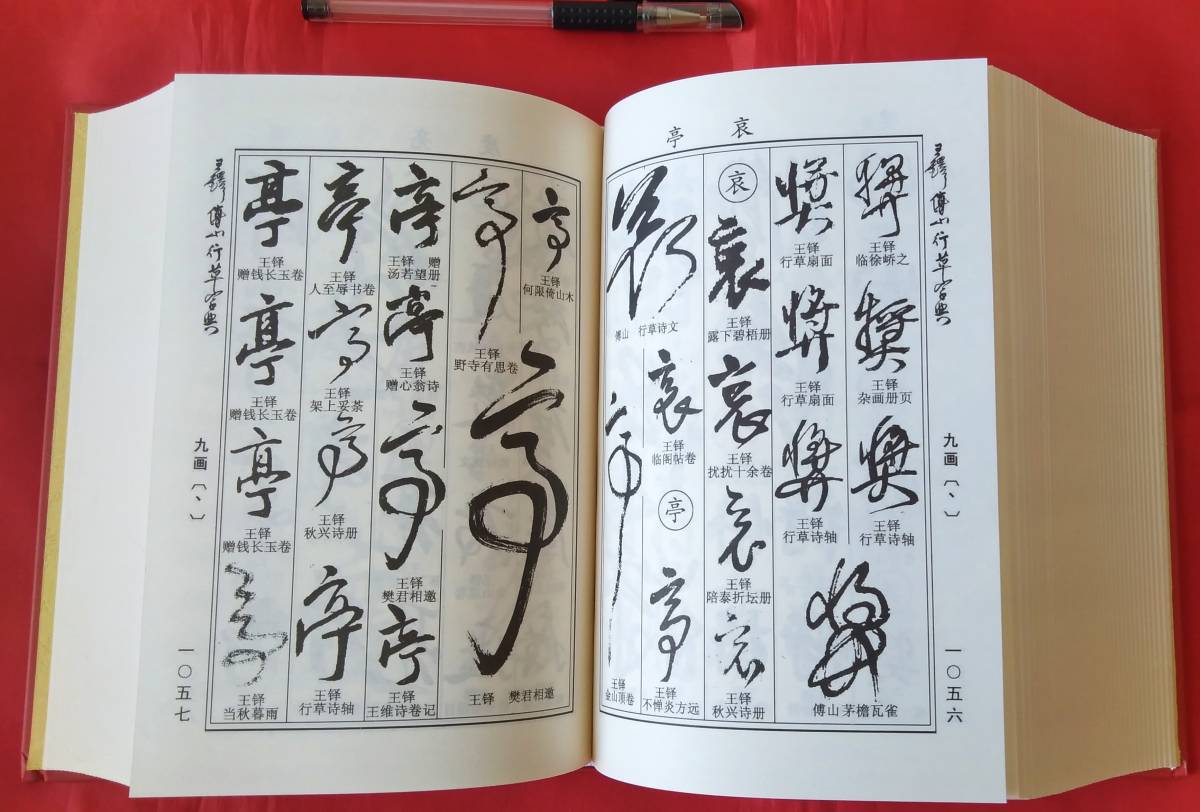 哀 亭
王铎傅山行草字典
九画〔丶〕
一〇五六
王铎
临徐峤之
王铎
杂画册页
王铎
行草诗轴
王铎
行草扇面
王铎
行草扇面
王铎
行草诗轴
傅山茅檐瓦雀
哀
哀
王铎
露下碧梧册
哀
王铎
扰扰十余卷
哀
王铎
陪泰折坛册
哀
王铎
秋兴诗册
傅山 行草诗文
哀
王铎
临阁帖卷
亭
亭
王铎
不惮炎方远
亭
王铎
金山顶卷
亭
王铎
何限倚山木
亭
王铎
野寺有思卷
亭
王铎 樊君相邀
亭
王铎 赠
汤若望册
亭
王铎
赠心翁诗
亭
王铎
樊君相邀
亭
王铎
王维诗卷记
亭
王铎
人至辱书卷
亭
王铎
架上妥茶
亭
王铎
秋兴诗册
亭
王铎
行草诗轴
亭
王铎
赠钱长玉卷
亭
王铎
赠钱长玉卷
亭
王铎
赠钱长玉卷
亭
王铎
当秋暮雨
王铎傅山行草字典
九画〔丶〕
一〇五七